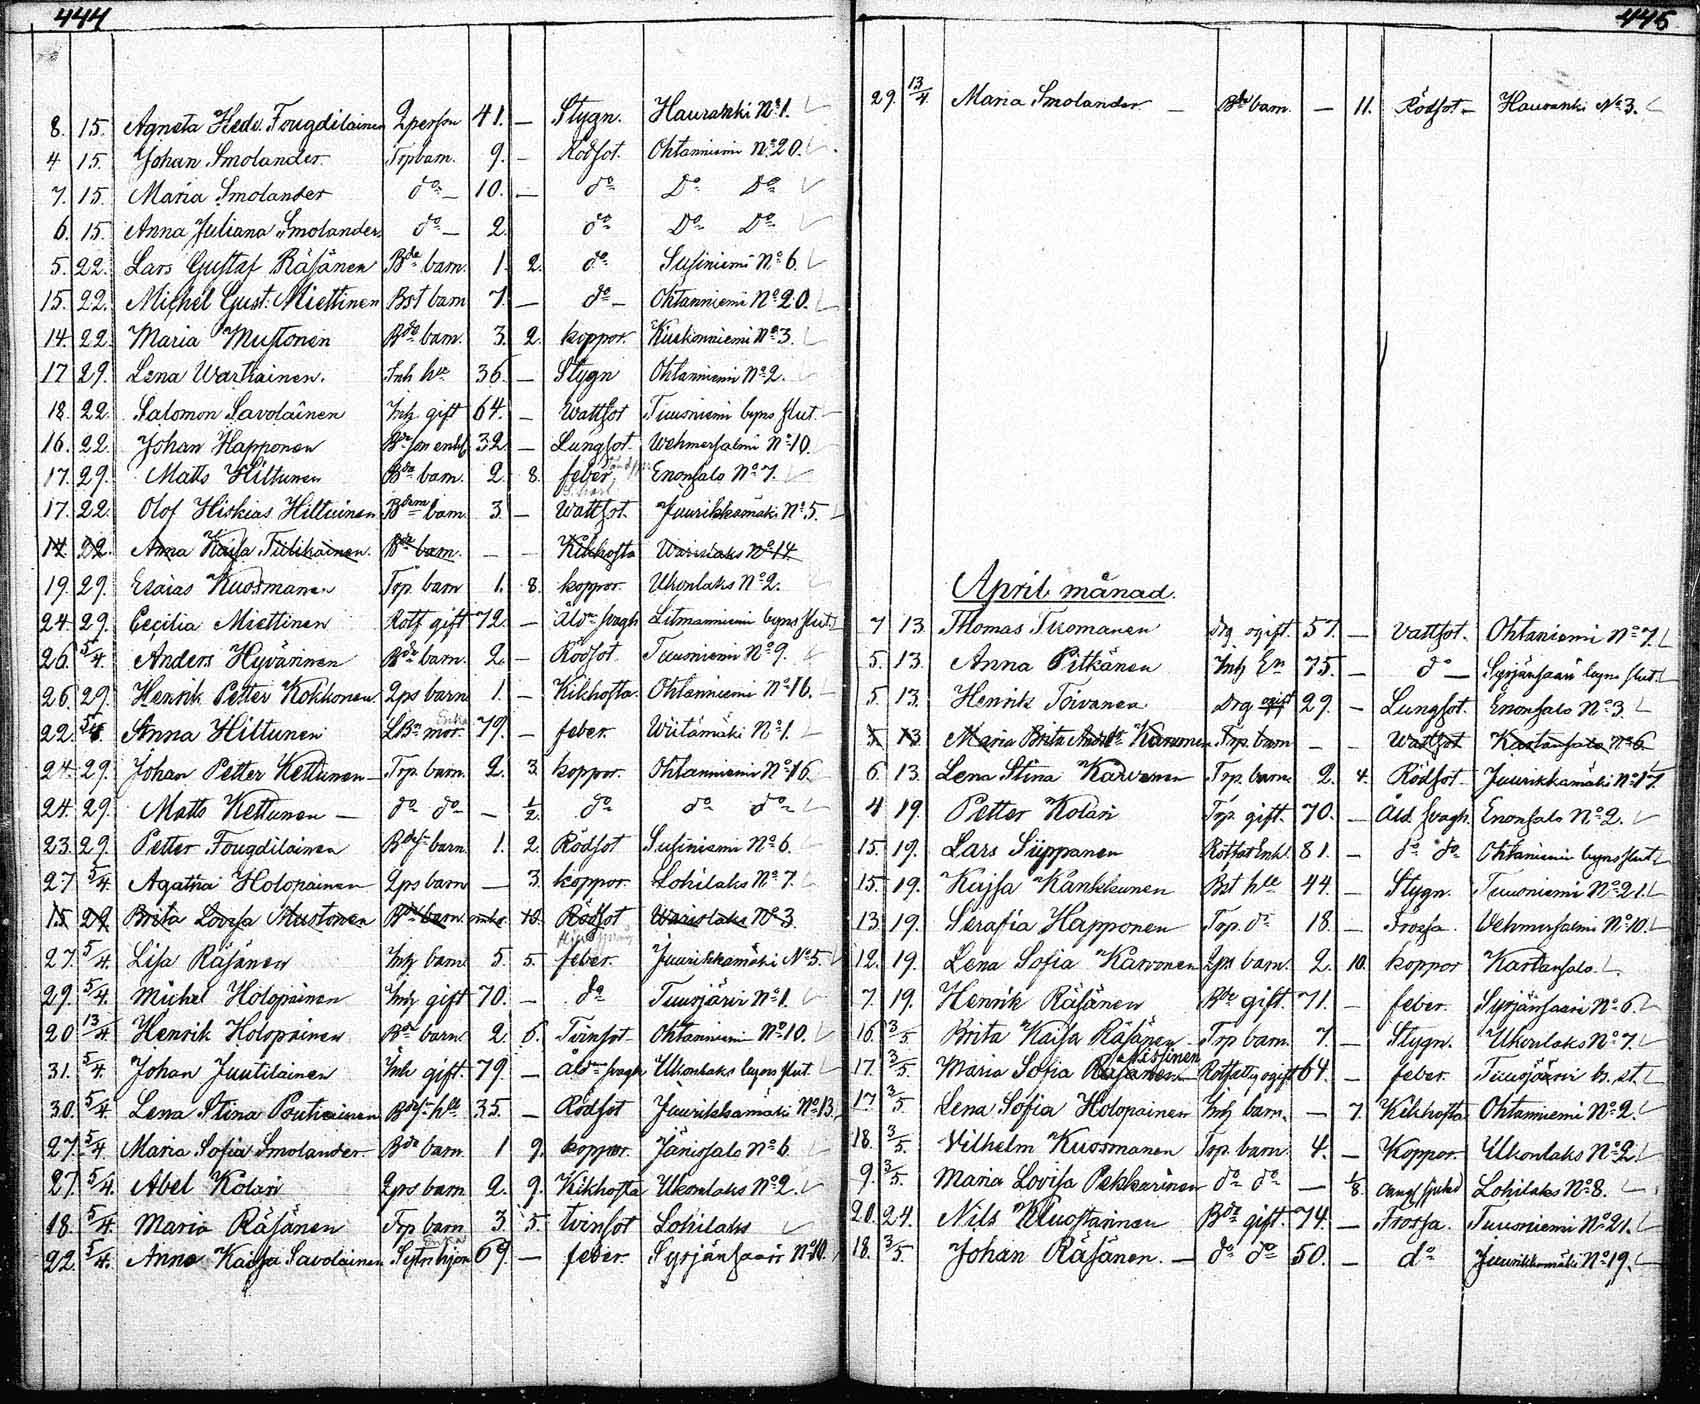 444
8. 15. Agneta Hedv. Fougdilainen Lperson 41. — Stygn. Hauranki No 1.
4 15. Johan Smolander Torpbarn. 9. — Rödsot. Ohtanniemi No 20.
7. 15. Maria Smolander do — 10. — do Do Do
6. 15. Anna Juliana Smolander do — 2. do Do Do
5. 22. Lars Gustaf Räsänen Bde barn. 1. 2. do Susiniemi No 6.
15. 22. Michel Gust. Miettinen Bst barn 7. — do — Ohtanniemi No 20.
14. 22. Maria Mustonen Bde barn. 3. 2. koppor. Kuokonniemi No 3.
17 29. Lena Wartiainen. Inh hu 36. — Stygn Ohtanniemi No 2.
18. 22. Salomon Savolainen Inh gift 64. — Wattsot Tuusniemi byns slut.
16. 22. Johan Happonen Bde son enkl. 32. — Lungsot. Wehmersalmi No 10.
17. 29. Matts Hiltunen Bde barn. 2. 8. feber Enonsalo No 7.
17. 22. Olof Hiskias Hiltunen barn 3 — Wattsot. Juurikkamäki No 5.
14 22. Anna Kaisa Tiilikainen. Bde barn. — — Kikhosta No 14
19. 29. Esaias Kuosmanen Torp. barn 1. 8. koppor. Ukonlaks No 2.
24. 29. Cecilia Miettinen Rotf gift 72. — Åldr svagh Litmaniemi byns slut.
26. 5/4. Anders Hyvärinen Bde barn. 2. — Rödsot. Tuusniemi No 9.
26. 29. Henrik Petter Kokkonen Lps barn 1. — Kikhosta. Ohtanniemi No 16.
22. 5/4. Anna Hiltunen mor. Enka 79. — feber. Wiitämäki No 1.
24. 29. Johan Petter Kettunen — Torp. barn. 2. 3. koppor. Ohtanniemi No 16
24. 29. Matts Kettunen — do do — 1/2. do do do
23. 29. Petter Fougdilainen barn. 1. 2. Rödsot Susiniemi No 6.
27 5/4. Agatha Holopainen Lps barn — 3. koppor. Lohilaks No 7.
15 22. Brita Lovisa Mustonen Bde barn 10. Rödsot No 3
27. 5/4. Lisa Räsänen Inh barn 5. 5. feber. Juurikkamäki No 5.
29. 5/4. Michel Holopainen Inh gift 70. — do Tuusjärvi No 1.
20 13/4. Henrik Holopainen Bde barn 2. 6. Tvinsot. Ohtanniemi No 10.
31. 5/4. Johan Juutilainen Inh gift. 79. — Åldr svagh Ukonlaks byns slut.
30. 5/4. Lena Stina Poutiainen hu 35. — Rödsot Juurikkamäki No 13
27. 5/4. Maria Sofia Smolander Bde barn 1 9. koppor. Jänissalo No 6.
27. 5/4. Abel Kolari Lps barn 2. 9. Kikhosta Ukonlaks No 2.
18. 5/4. Maria Räsänen Torp barn 3. 5. tvinsot Lohilaks
22. 5/4. Anna Kaisa Savolainen Enka 69. — feber. Syrjänsaari No 10.
445
29. 13/4. Maria Smolander — Bde barn. — 11. Rödsot — Hauranki No 3.
April månad.
7 13. Thomas Tiromanen Drg ogift. 57. — Vattsot. Ohtaniemi No 7.
5. 13. Anna Pitkänen Inh En 75. — do — Syrjänsaari byns slut.
5. 13. Henrik Toivanen Drg ogift 29. — Lungsot. Enonsalo No 3.
5 13 Maria Brita Karvonen Torp barn — — Wattsot Kartansalo No 6
6. 13. Lena Stina Karvonen Torp. barn 2. 4. Rödsot. Juurikkamäki No 17.
4 19. Petter Kolari Torp. gift. 70. — Åld. svagh. Enonsalo No 2.
15. 19. Lars Siippanen Enkl. 81. — do do Ohtaniemi byns slut
15. 19. Kajsa Kankkunen Bst hu 44. — Stygn. Tuusniemi No 21.
13. 19. Serafia Happonen Torp. do 18. — Frossa. Wehmersalmi No 10.
12. 19. Lena Sofia Karvonen Lps barn. 2. 10. koppor Kartansalo.
7. 19. Henrik Räsänen Bde gift. 71. — feber. Syrjänsaari No 6.
16. 3/5. Brita Kaisa Räsänen — Torp barn. 7. — Stygn. Ukonlaks No 7.
17. 3/5. Maria Sofia Rotfattig ogift 64. — feber. Tuusjärvi
17. 3/5. Lena Sofia Holopainen Inh barn. — 7. Kikhosta Ohtanniemi No 2.
18. 3/5. Vilhelm Kuosmanen Torp. barn. 4. — Koppor. Ukonlaks No 2.
9. 3/5. Maria Lovisa Pekkarinen do do — 1/8. Lohilaks No 8.
20. 24. Nils Bde gift. 74. — Frossa. Tuusniemi No 21.
18. 3/5. Johan Räsänen. — do do 50. — do Juurikkamäki No 19.